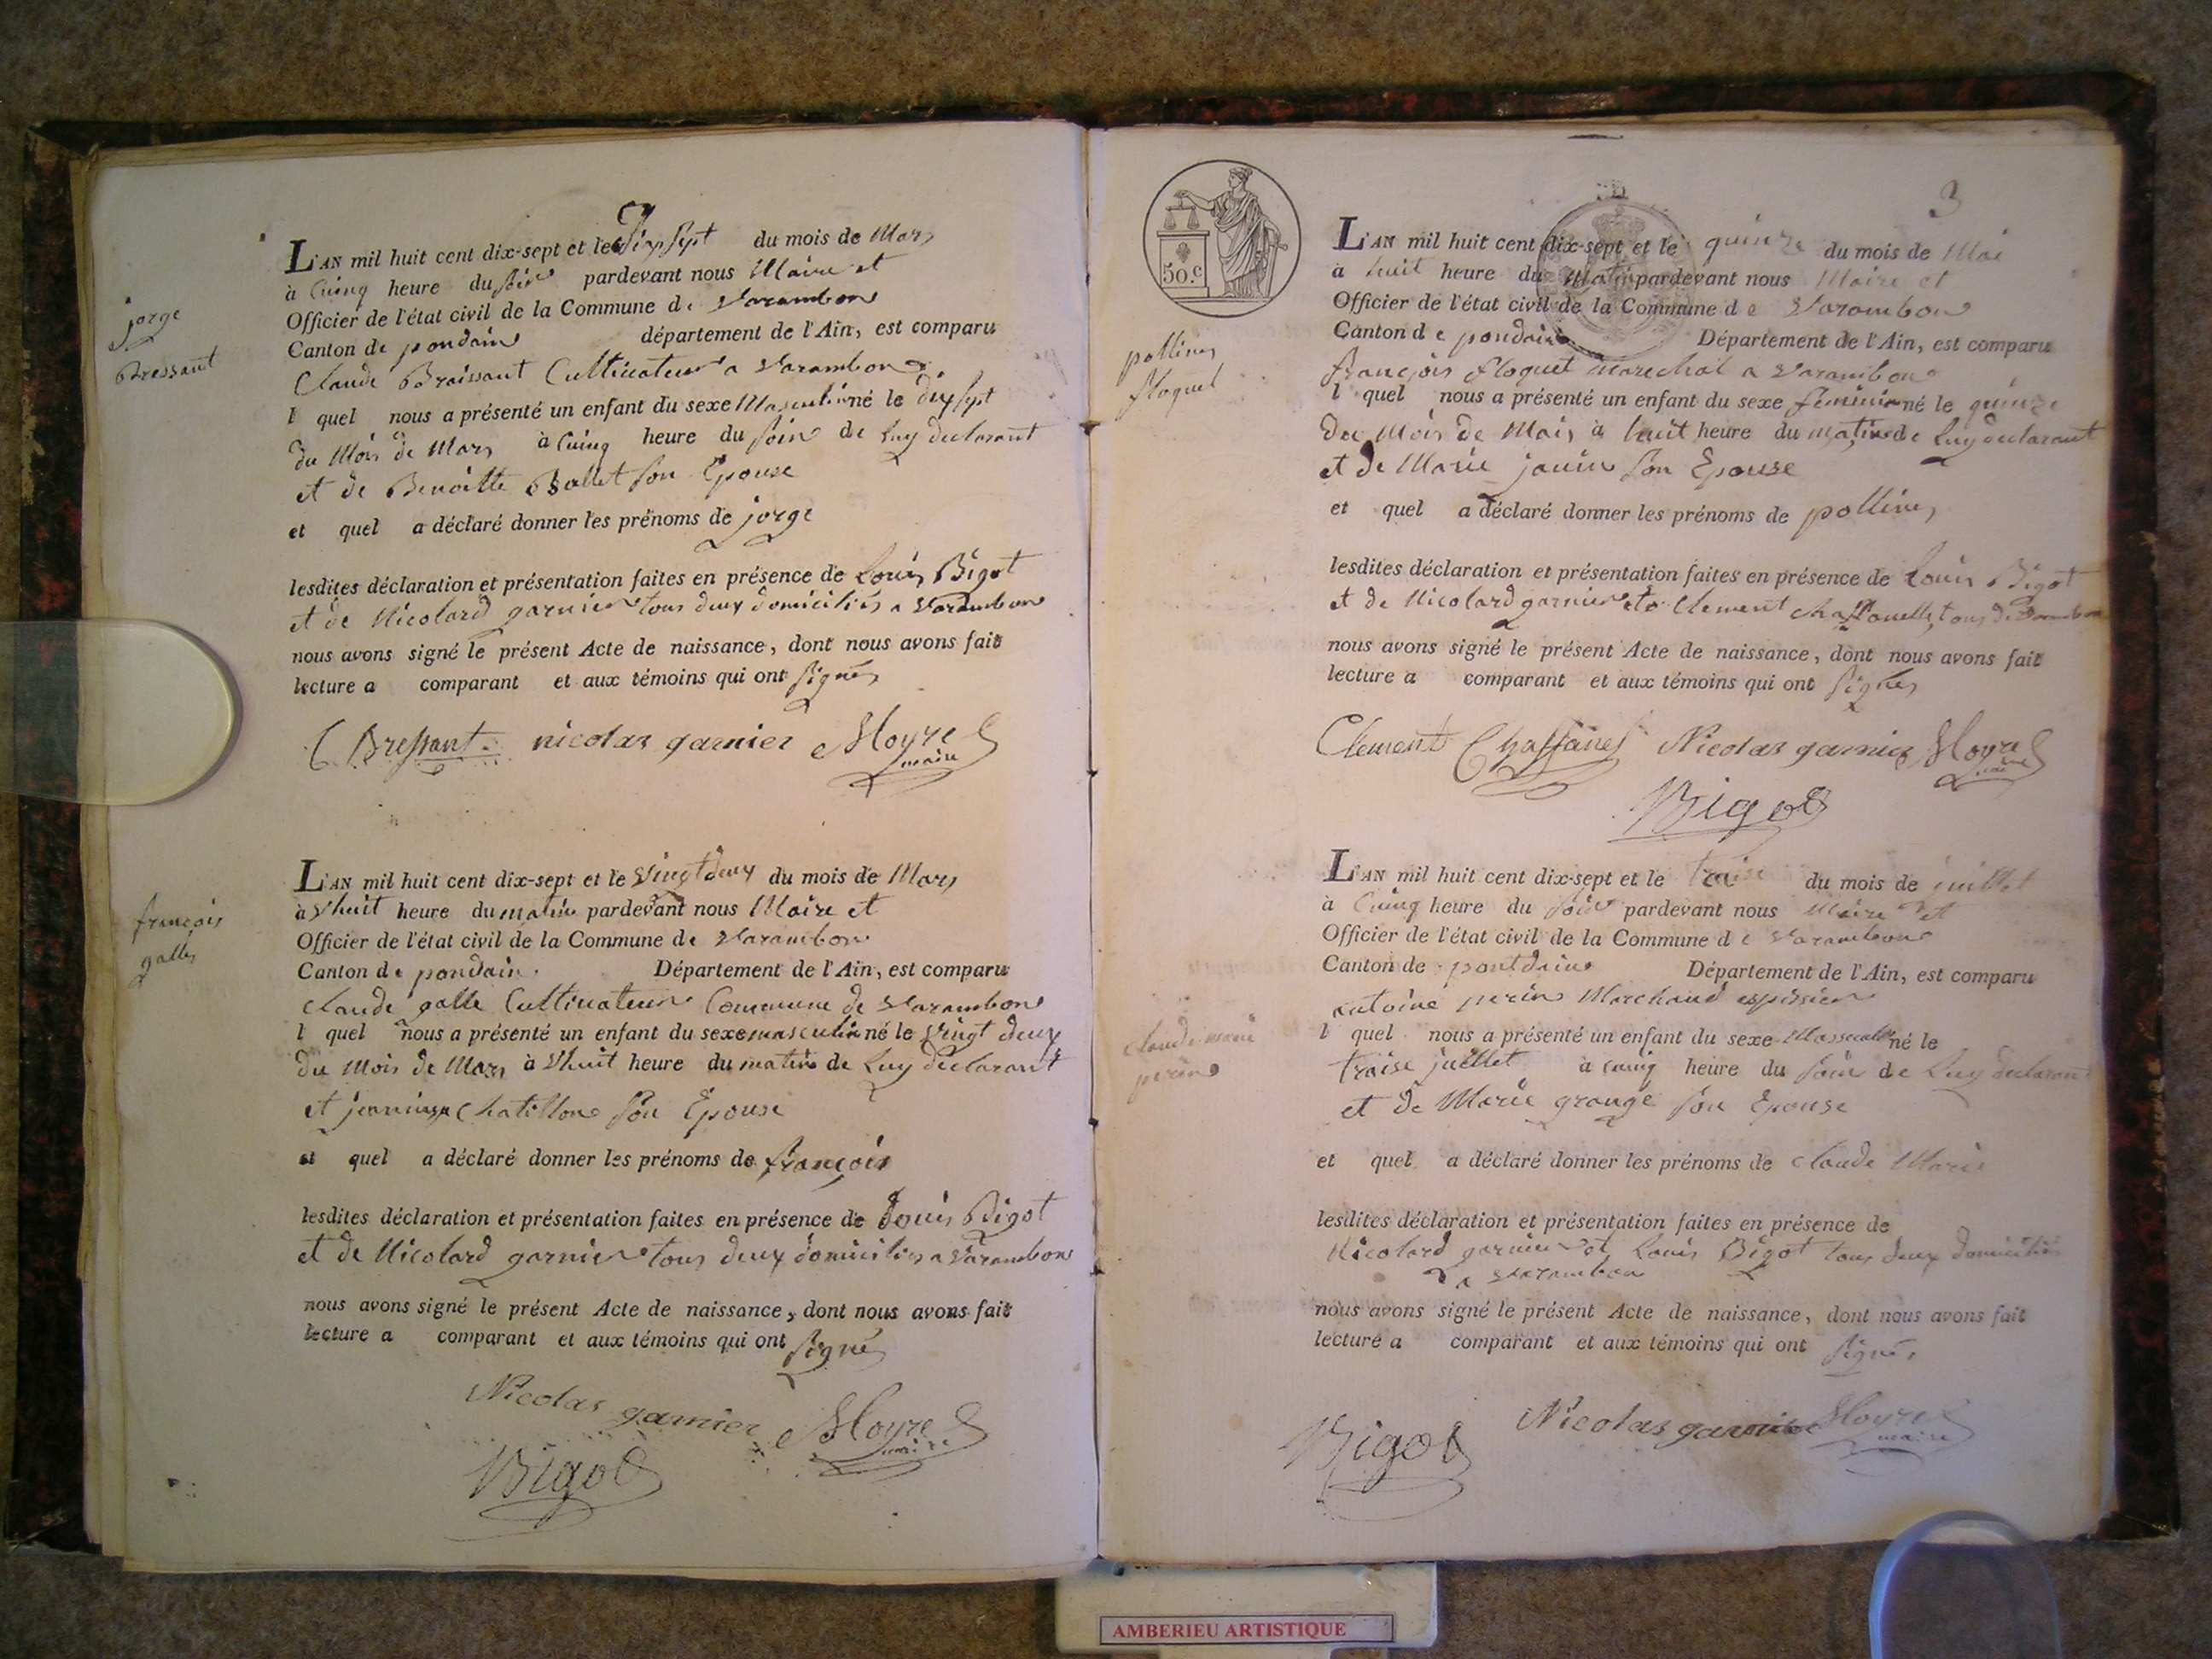 jorge
Bressant
L'AN mil huit cent dix-sept et le Dixsept du mois de Mars
à Cuinq heure du soir pardevant nous Maire et
Officier de l'état civil de la Commune de Varambon
Canton de pondain département de l'Ain, est comparu
Claude Braissant Cultivateur a Varambon
l quel nous a présenté un enfant du sexe Masculin né le dixsept
du Mois de Mars à Cuinq heure du soir de Luy declarant
et de Benoitte Ballet son Epouse
et quel a déclaré donner les prénoms de jorge
lesdites déclaration et présentation faites en présence de Louis Bigot
et de Nicolard garnier tous deux domiciliés a Varambon
nous avons signé le présent Acte de naissance, dont nous avons fait
lecture a comparant et aux témoins qui ont signés
C Bressant nicolas garnier Moyret
maire
françois
galles
L'AN mil huit cent dix-sept et le Vingt deux du mois de Mars
à Vhuit heure du matin pardevant nous Maire et
Officier de l'état civil de la Commune de Varambon
Canton de pondain. Département de l'Ain, est comparu
Claude galle Cultivateur Commune de Varambon
l quel nous a présenté un enfant du sexe masculin né le Vingt deux
du Mois de Mars à Vhuit heure du matin de Luy declarant
et jeannique Chatillon son Epouse
et quel a déclaré donner les prénoms de françois
lesdites déclaration et présentation faites en présence de Louis Bigot
et de Nicolard garnier tous deux domiciliés a Varambon
nous avons signé le présent Acte de naissance, dont nous avons fait
lecture a comparant et aux témoins qui ont signés
Nicolas garnier Moyret
maire
Bigot
3
50.c
polline
floquet
L'AN mil huit cent dix-sept et le quinze du mois de Mai
à huit heure du Matin pardevant nous Maire et
Officier de l'état civil de la Commune de Varambon
Canton de pondain Département de l'Ain, est comparu
françois floquet marechal a Varambon
l quel nous a présenté un enfant du sexe féminin né le quinze
du Mois de Mais à huit heure du matin de Luy declarant
et de Marie janin son Epouse
et quel a déclaré donner les prénoms de polline
lesdites déclaration et présentation faites en présence de Louis Bigot
et de Nicolard garnier et Clement tous de Varambon
nous avons signé le présent Acte de naissance, dont nous avons fait
lecture a comparant et aux témoins qui ont signés
Clement Chaffanel Nicolas garnier Moyret
maire
Bigot
claude marie
perin
L'AN mil huit cent dix-sept et le traise du mois de juillet
à Cuinq heure du soir pardevant nous Maire et
Officier de l'état civil de la Commune de Varambon
Canton de pontdain Département de l'Ain, est comparu
antoine perin Marchand espissier
l quel nous a présenté un enfant du sexe né le
traise juillet à cuinq heure du soir de Luy declarant
et de Marie grange son Epouse
et quel a déclaré donner les prénoms de claude Marie
lesdites déclaration et présentation faites en présence de
Nicolard garnier et Louis Bigot tous deux domiciliés
a Varambon
nous avons signé le présent Acte de naissance, dont nous avons fait
lecture a comparant et aux témoins qui ont signés
Bigot Nicolas garnier Moyret
maire
AMBERIEU ARTISTIQUE